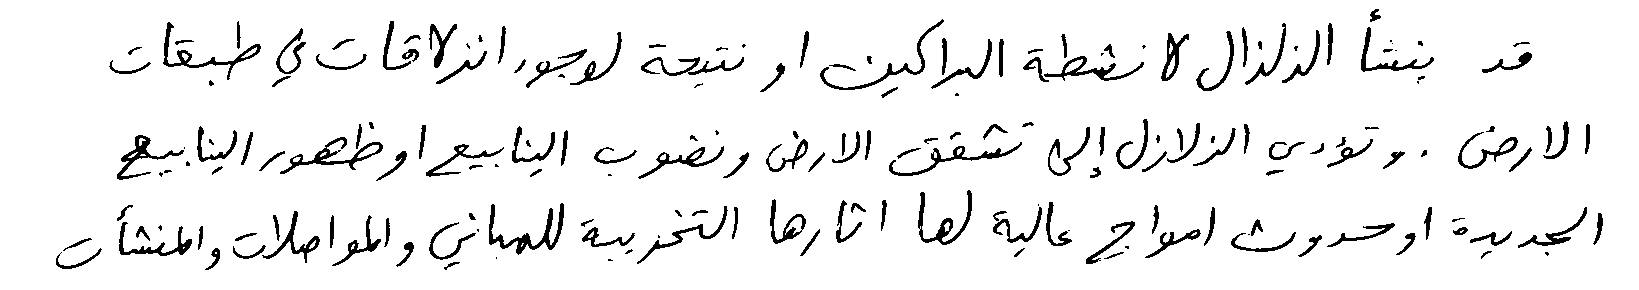 قد ينشأ الزلزال لانشطة البراكين او نتيجة لوجود انزلاقات في طبقات
الارض . وتؤدي الزلازل إلى تشقق الارض ونضوب الينابيع او ظهور الينابيع
الجديدة او حدوث امواج عالية لها اثارها التخريبية للمباني والمواصلات والمنشأت